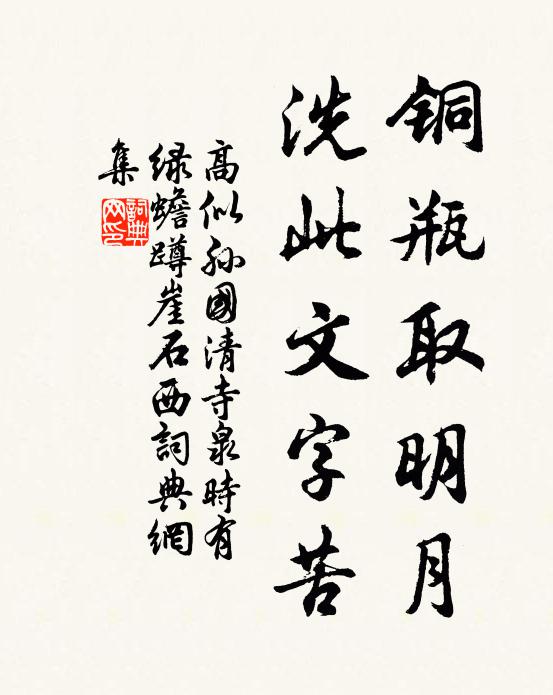 铜瓶取明月
洗此文字苦
高似孙國清寺泉時有
绿蟾蹲崖石西詞典網
集
詞典網印